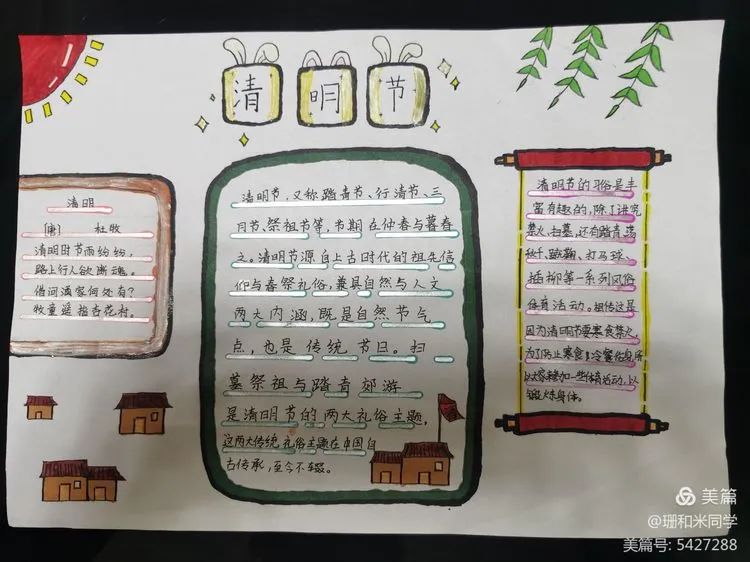 清明节
清明
[唐] 杜牧
清明时节雨纷纷，
路上行人欲断魂。
借问酒家何处有？
牧童遥指杏花村。
清明节，又称踏青节、行清节、三
月节、祭祖节等，节期在仲春与暮春
之。清明节源自上古时代的祖先信
仰与春祭礼俗，兼具自然与人文
两大内涵，既是自然节气
点，也是传统节日。扫
墓祭祖与踏青郊游
是清明节的两大礼俗主题，
这两大传统礼俗主题在中国自
古传承，至今不辍。
清明节的习俗是丰
富有趣的，除了讲究
禁火、扫墓，还有踏青、荡
秋千、蹴鞠、打马球、
插柳等一系列风俗
体育活动。相传这是
因为清明节要寒食禁火，
为了防止寒食冷餐伤身，所
以大家参加一些体育活动，以
锻炼身体。
美篇
@珊和米同学
美篇号: 5427288